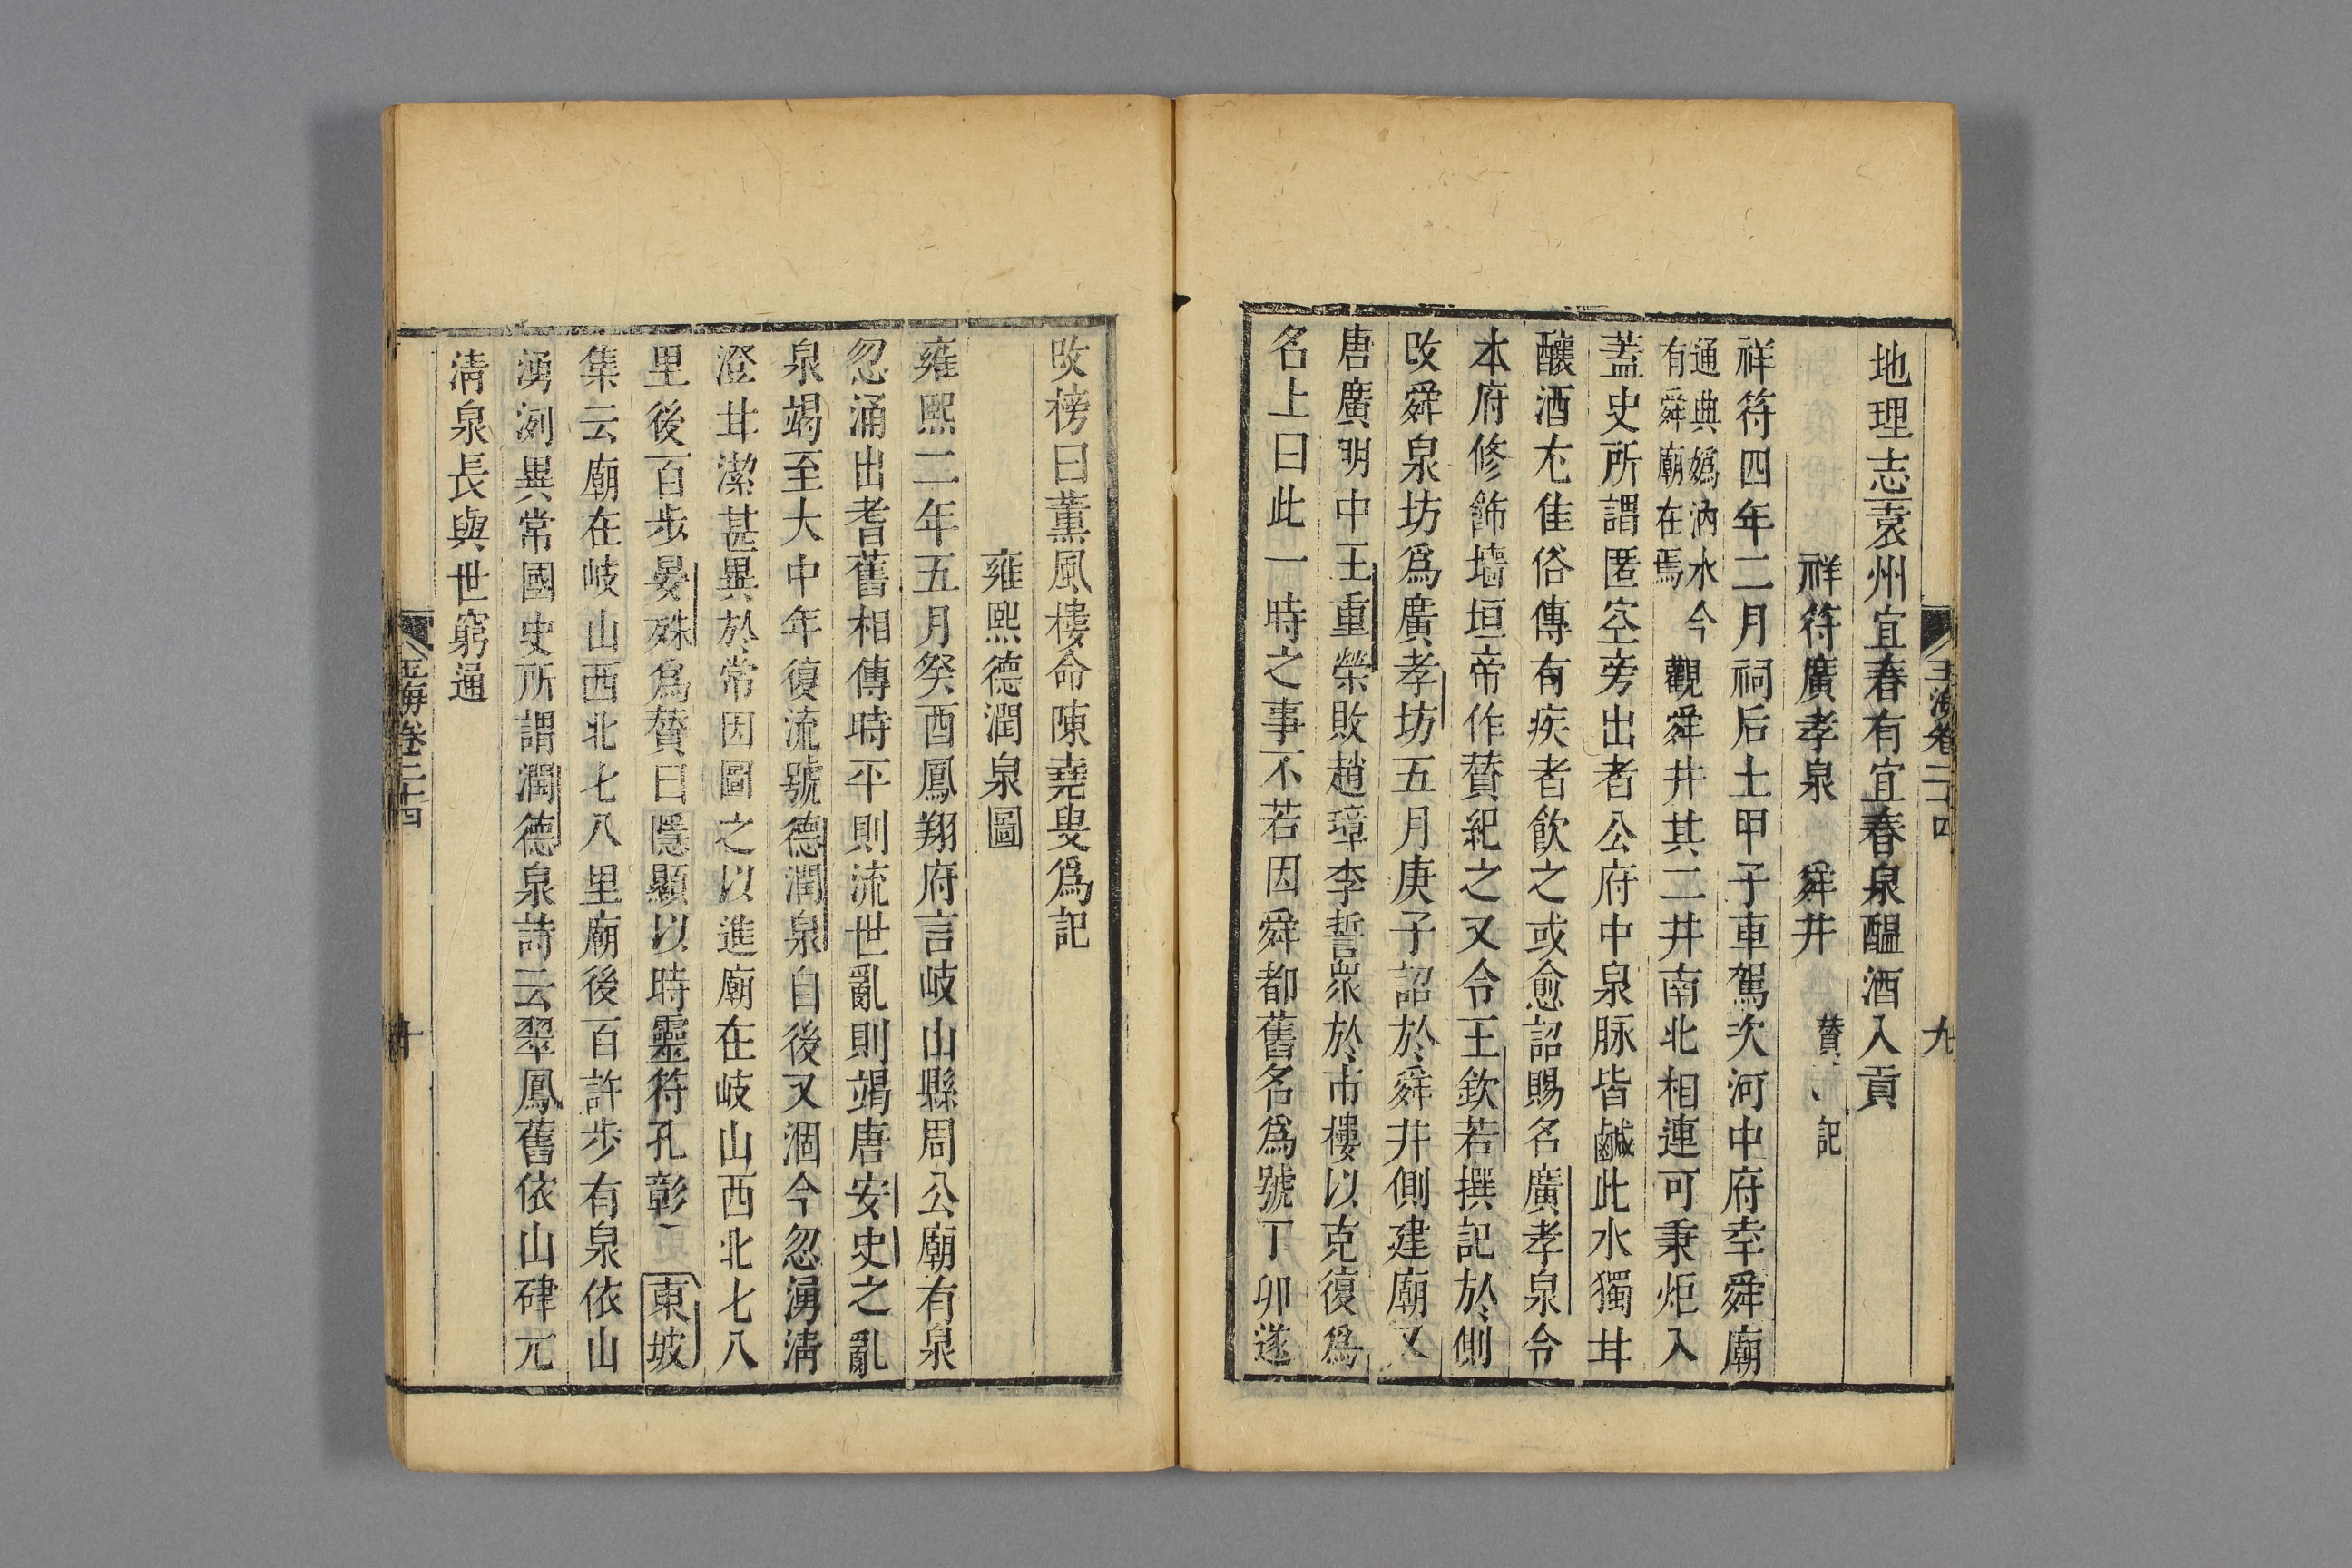 玉海卷二十四 九
地理志袁州宜春有宜春泉醖酒入貢
祥符廣孝泉 舜井 贊、記
祥符四年二月祠后土甲子車駕次河中府幸舜廟
通典媯汭水今
有舜廟在焉
觀舜井其二井南北相連可秉炬入
蓋史所謂匿空旁出者公府中泉脉皆鹹此水獨甘
釀酒尤佳俗傳有疾者飲之或愈詔賜名廣孝泉令
本府修飾墻垣帝作贊紀之又令王欽若撰記於側
改舜泉坊爲廣孝坊五月庚子詔於舜井側建廟又
唐廣明中王重榮敗趙璋李誓衆於市樓以克復爲
名上曰此一時之事不若因舜都舊名爲號丁卯遂
改榜曰薰風樓命陳堯叟爲記
雍熙德潤泉圖
雍熙二年五月癸酉鳳翔府言岐山縣周公廟有泉
忽涌出耆舊相傳時平則流世亂則竭唐安史之亂
泉竭至大中年復流號德潤泉自後又涸今忽湧清
澄甘潔甚異於常因圖之以進廟在岐山西北七八
里後百步晏殊爲贊曰隱顯以時靈符孔彰 東坡
集云廟在岐山西北七八里廟後百許步有泉依山
湧冽異常國史所謂潤德泉詩云翠鳳舊依山硉兀
清泉長與世窮通
玉海卷二十四 十